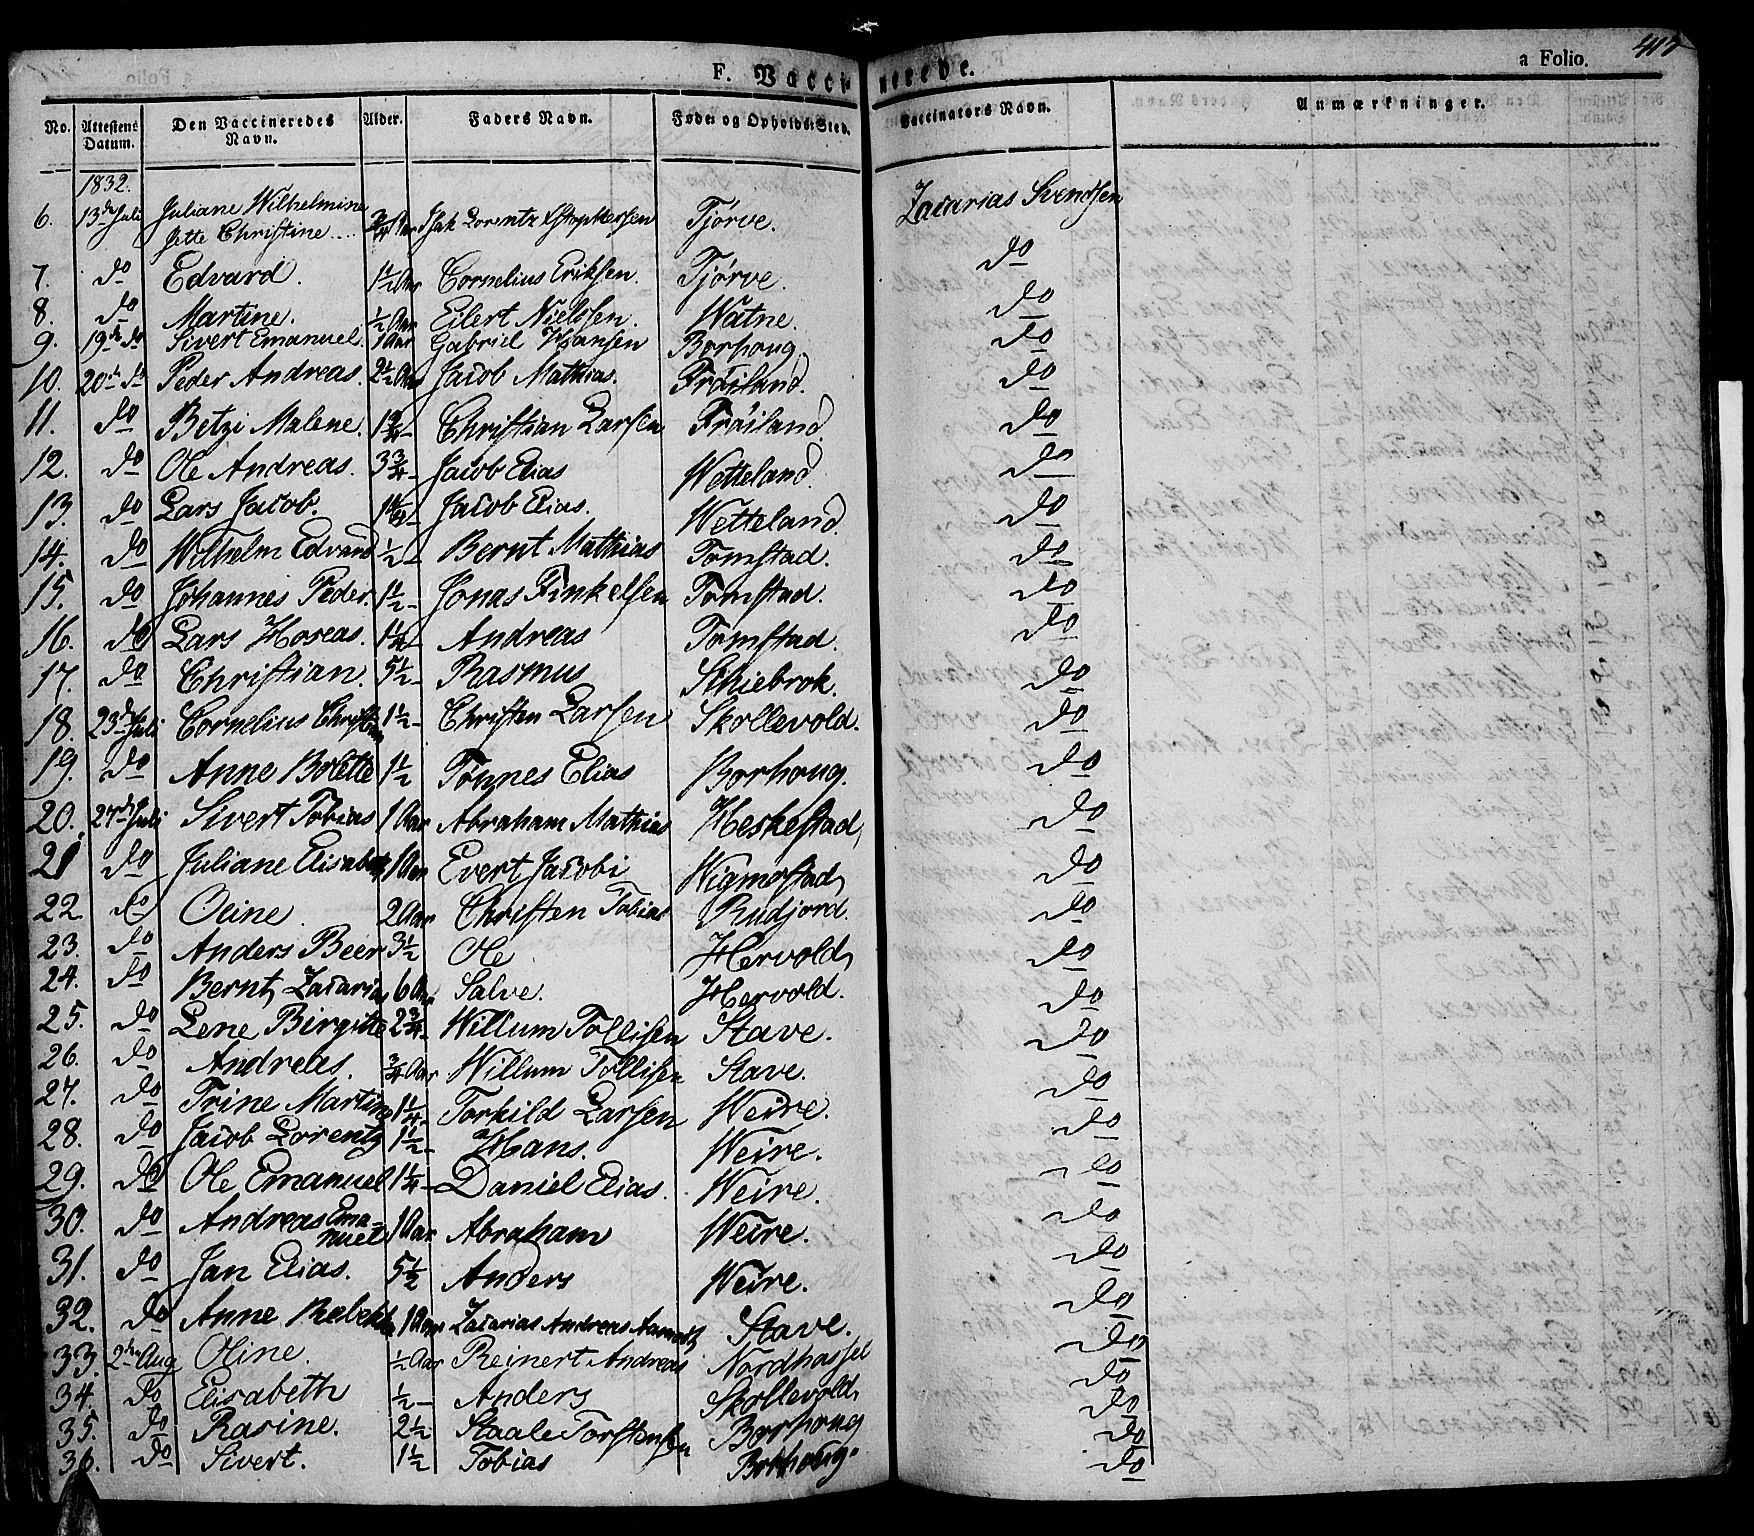 F. Vaccinerede. a Folio. 417
No. Attestens Datum. Den Vaccineredes Navn. Alder. Faders Navn. Føde- og Opholds-Sted. Vaccinators Navn. Anmærkninger.
1832.
6. 13de Juli Juliane Wilhelmine Jette Christine 3/4 Aar Isak Lorentz Tjørve. Zacarias Svendsen
7. do Edvard. 1 1/2 Aar Cornelius Eriksen. Tjørve. do
8. do Martine. 1/2 Aar Eilert Nielssen. Watne. do
9. 19de do Sivert Emanuel. 1 Aar Gabriel Hansen Borhoug. do
10. 20de do Peder Andreas. 2 1/2 Aar Jacob Mathias. Fröiland. do
11. do Betzi Malene. 1 3/4 Christian Larsen Fröiland. do
12. do Ole Andreas. 3 3/4 Jacob Elias Wetteland. do
13. do Lars Jacob. 1 1/4 Jacob Elias. Wetteland. do
14. do Wilhelm Edvard 1/2 Bernt Mathias Tomstad. do
15. do Johannes Peder. 1 1/2 Jonas Finkelsen Tomstad. do
16. do Lars Horeas. 1 1/4 Andreas Tomstad. do
17. do Christian. 5 1/2 Rasmus Schiebrok. do
18. 23de Juli Cornelius 1 1/2 Christen Larsen Skollevold. do
19. do Anne Bolette 1 1/2 Tønnes Elias Borhoug. do
20. 27de Juli Sivert Tobias 1 Aar Abraham Mathias Heskestad, do
21 do Juliane Elisabeth 1 Aar Evert Jacobi Wigmostad, do
22 do Oline. 2 Aar Christen Tobias Rudjord. do
23. do Anders Beer 3 1/2 Ole Hervold, do
24. do Bernt Zacarias 6 Aar Salve. Hervold. do
25. do Lene Birgitte 2 3/4 Willum Tollisen Stave. do
26. do Andreas. 3/4 Aar Willum Tollisen Stave. do
27. do Trine Martine 1 1/4 Torkild Larsen Weire. do
28. do Jacob Lorentz 1 1/2 Hans. Weire. do
29. do Ole Emanuel 1 1/4 Daniel Elias. Weire. do
30. do Andreas Ema=nuel 1 Aar Abraham Weire. do
31. do Jan Elias. 5 1/2 Anders Weire. do
32. do Anne Rebekka 1 Aar Zacarias Andreas Stave. do
33. 2den Aug Oline. 1/2 Aar Reinert Andreas Nordhassel do
34. do Elisabeth 1/2 Anders Skollevold, do
35. do Rasine. 2 1/2 Staale Torstensen Borhoug do
36. do Sivert. 1 1/2 Tobias Borhoug. do